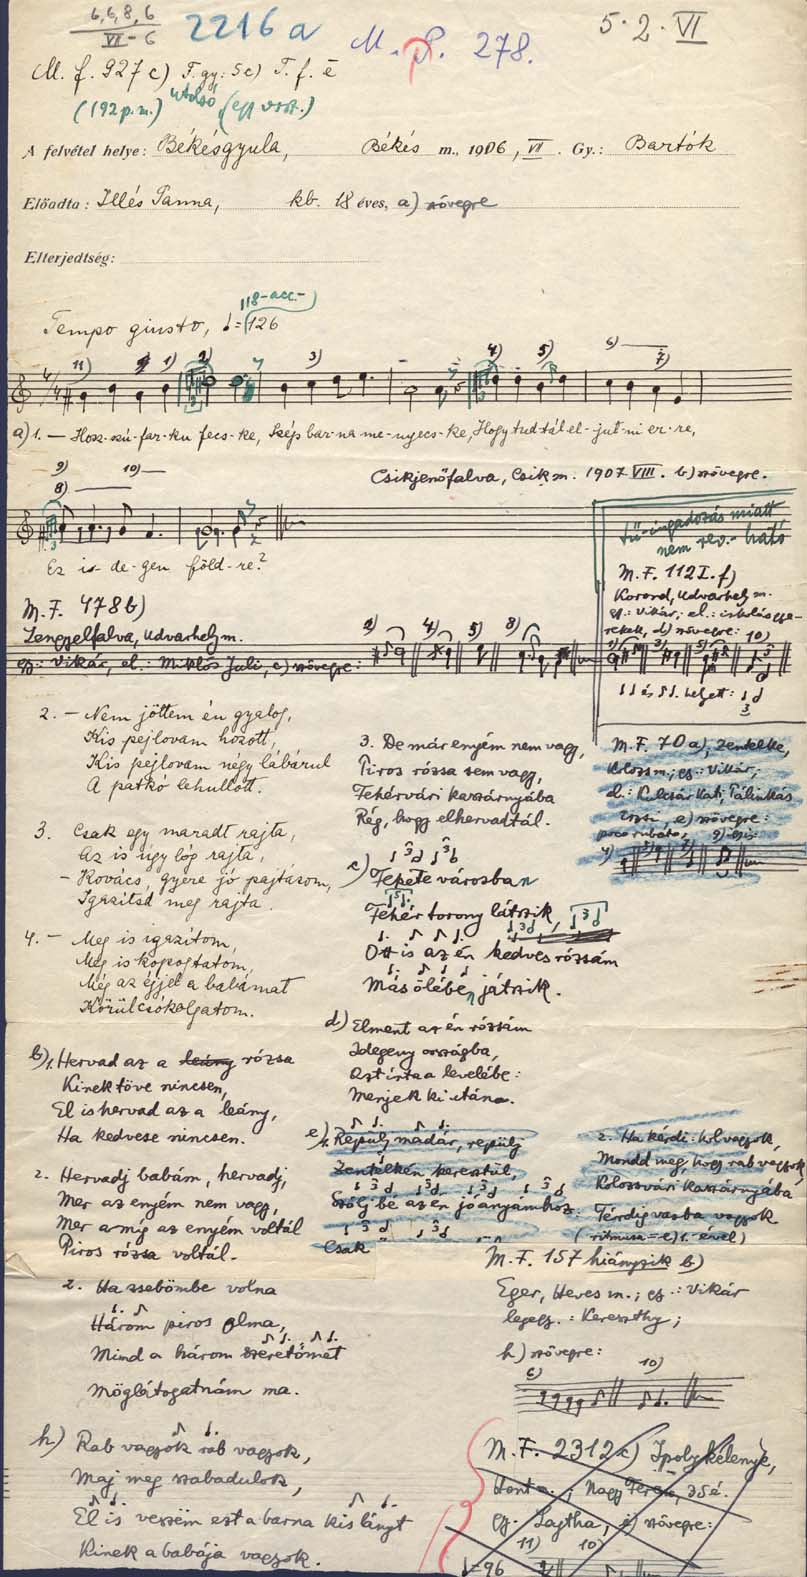 6, 6, 8, 6
VI - 6
2216a
M. P. 278.
5. 2. VI
M. f. 927c) F. gy: 5c) T. f. ē
(192 p.m.) utolsó (egy vrst.)
A felvétel helye: Békésgyula, Békés m., 1906, VII. Gy.: Bartók
Előadta: Illés Panna, kb. 18 éves, a) szövegre
Elterjedtség:
118-acc.-
Tempo giusto, ♩=126
11) 1) 2) 3) 4) 5) 6) 7)
a) 1. — Hosz-szú-far-ku fecs-ke, Szép bar-na me-nyecs-ke, Hogy tud-tál el-jut-ni er-re,
9) 10)
8)
Csikjenőfalva, Csik m. 1907 VIII. b) szövegre.
Ez i-de-gen föld-re?
tű-ingadozás miatt
nem rev.-ható
M.F. 112I. f)
Korond, Udvarhely m.
gy.: Vikár; el.: iskolásgye-
rekek, d) szövegre:
10)
helyett:
M.F. 478b)
Lengyelfalva, Udvarhelym.
gy.: Vikár, el.: Miklós Juli, c) szövegre:
4) 5) 8)
2. — Nem jöttem én gyalog,
Kis pejlovam hozott,
Kis pejlovam négy lábárul
A patkó lehullott.
3. Csak egy maradt rajta,
Az is úgy lóg rajta,
— Kovács, gyere jó pajtásom,
Igazítsd meg rajta.
4. — Meg is igazítom,
Meg is kopogtatom,
Még az éjjel a babámat
Körülcsókolgatom.
b) 1. Hervad az a leány rózsa
Kinek töve nincsen,
El is hervad az a leány,
Ha kedvese nincsen.
2. Hervadj babám, hervadj,
Mer az enyém nem vagy,
Mer a míg az enyém voltál
Piros rózsa voltál.
3. De már enyém nem vagy,
Piros rózsa sem vagy,
Fehérvári kaszárnyába
Rég, hogy elhervadtál.
c) Fekete városban
Fehér torony látszik,
Ott is az én kedves rózsám
Más ölébe játszik.
d) Elment az én rózsám
Idegeny országba,
Azt írta a levelébe:
Menjek ki utána.
M.F. 70a), Zentelke,
Kolozsm.; gy.: Vikár;
el.: Kulcsár Kati, Pálinkás
e) szövegre:
poco rubato,
e) 1. Repülj madár, repülj
Zentelkén keresztül,
Szólj bé az én jóanyámhoz:
Csak
2. Ha kérdi: hol vagyok,
Mondd meg, hogy rab vagyok,
Kolozsvári kaszárnyába
Térdig vasba vagyok
(ritmusa = e) 1. ével)
2. Ha zsebömbe volna
Három piros alma,
Mind a három szeretőmet
Möglátogatnám ma.
M.F. 157 hiányzik b)
Eger, Heves m.; gy.: Vikár
legegy.: Kereszthy;
h) szövegre:
6) 10)
h) Rab vagyok rab vagyok,
Maj meg szabadulok,
El is veszëm ezt a barna kis lányt
Kinek a babája vagyok.
M.F. 2312c) Ipolykélenye,
Hont m.; Nagy Ferenc, 35é.
gy. Lajtha, i) szövegre:
11) 10)
♩=96